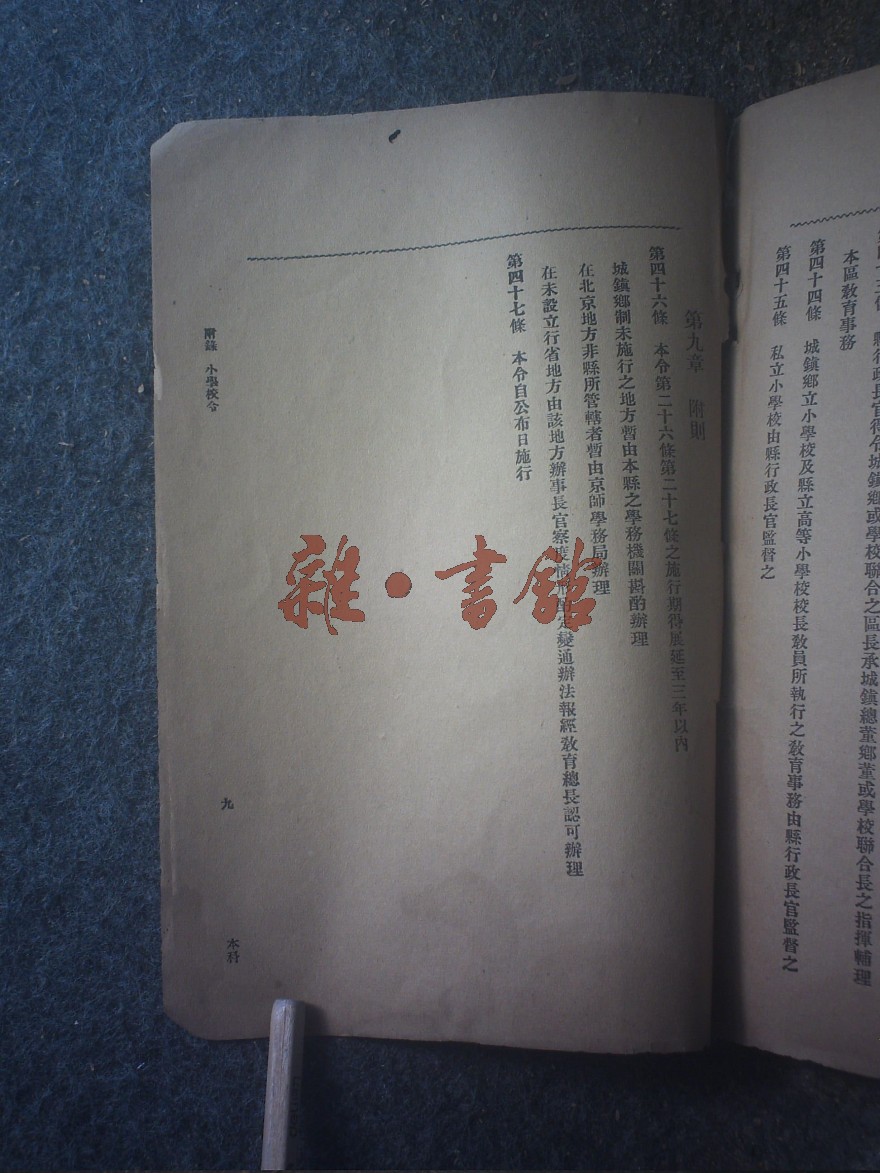 縣行政長官得令城鎮鄉或學校聯合之區長承城鎮總董鄉董或學校聯合長之指揮輔理
本區教育事務
第四十四條 城鎮鄉立小學校及縣立高等小學校校長教員所執行之教育事務由縣行政長官監督之
第四十五條 私立小學校由縣行政長官監督之
第九章 附則
第四十六條 本令第二十六條第二十七條之施行期得展延至三年以內
城鎮鄉制未施行之地方暫由本縣之學務機關斟酌辦理
在北京地方非縣所管轄者暫由京師學務局辦理
在未設立行省地方由該地方辦事長官察度情形酌定變通辦法報經教育總長認可辦理
第四十七條 本令自公布日施行
附錄 小學校令
九
本科
雜·書館